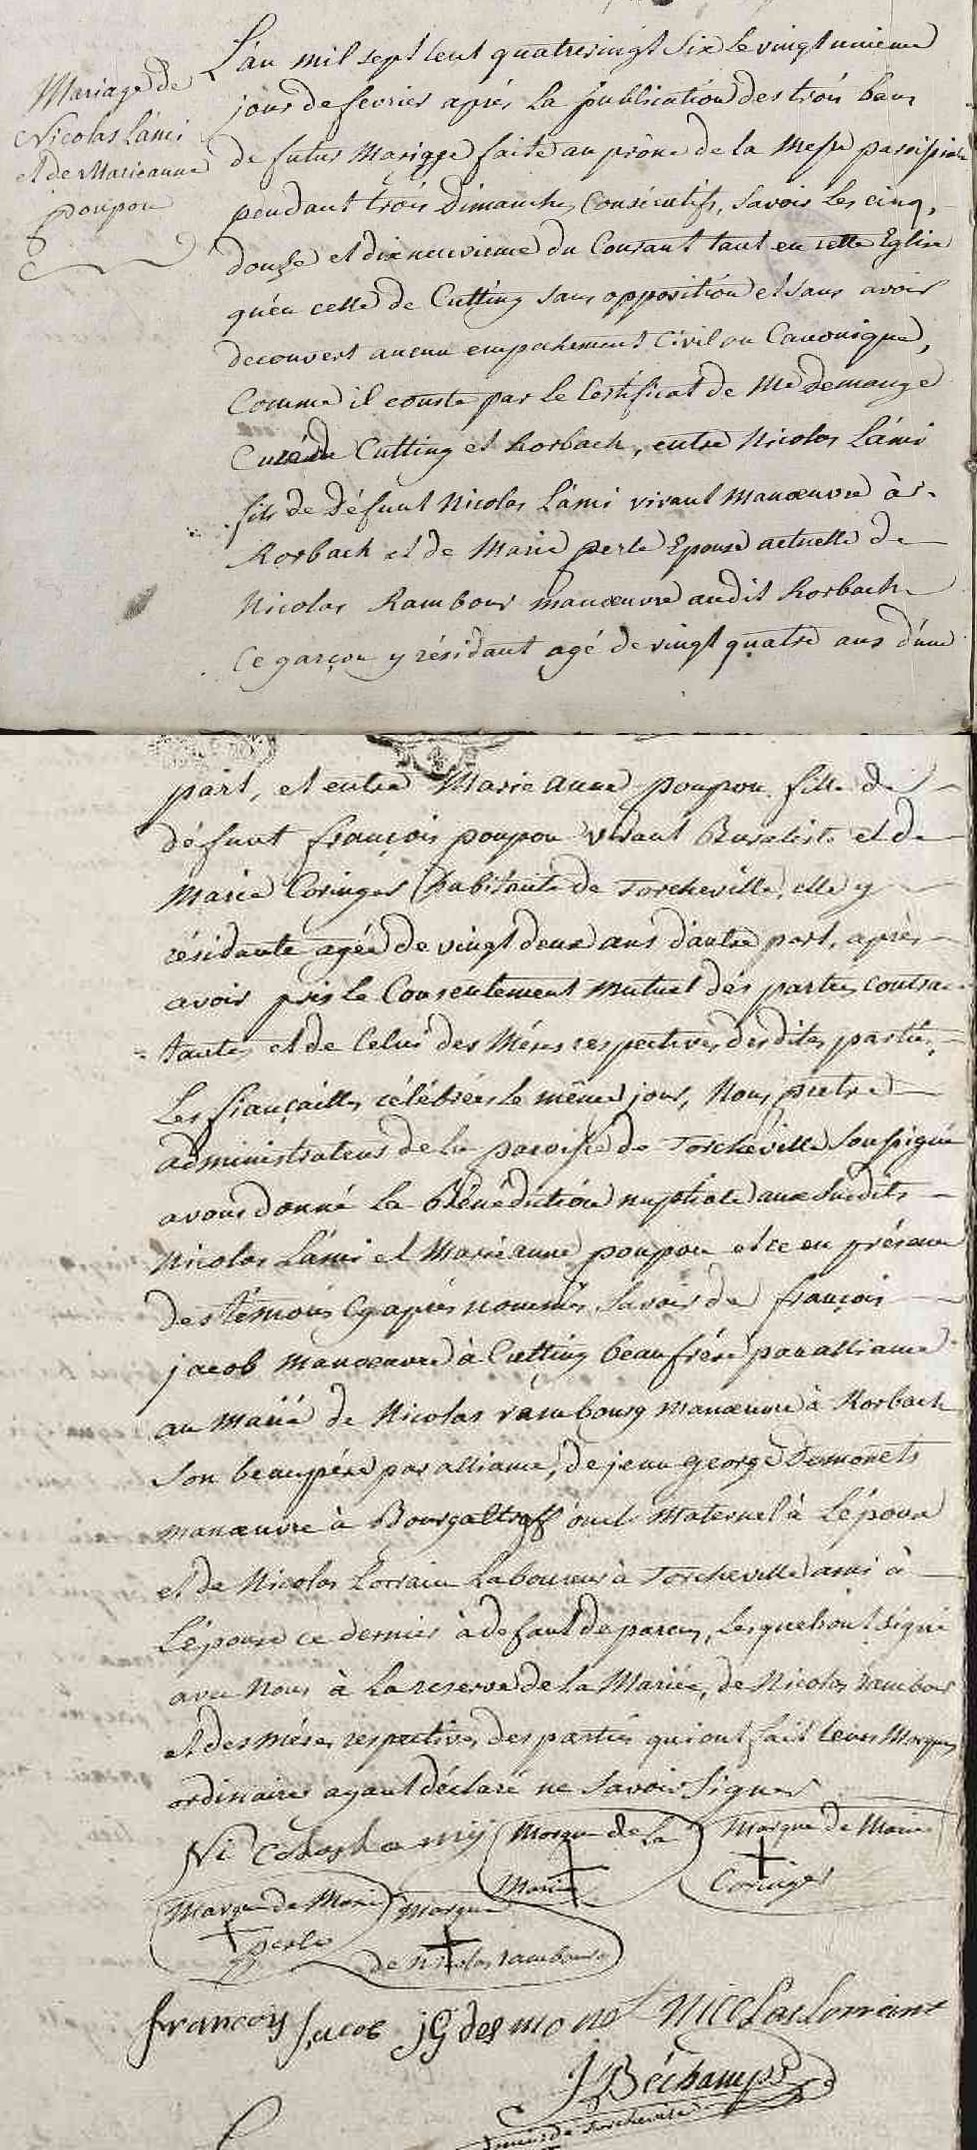 Mariage de
Nicolas Lámi
et de Marieanne
poupon
L'an mil sept cent quatrevingt six le vingt unieme
jour de fevrier aprés la publication des trois bans
de futur Mariage faite au prône de la Messe paroissiale
pendant trois Dimanches Consécutifs, savoir les cinq,
douze et dixneuvieme du Courant tant en cette Eglise
qu'en celle de Cutting sans opposition et sans avoir
decouvert aucun empechement Civil ou Canonique,
Comme il conste par le Certificat de Me demange
Curé de Cutting et Rorbach, entre Nicolas Lámi
fils de défunt Nicolas Lámi vivant Manœuvre à
Rorbach et de Marie perle Epouse actuelle de
Nicolas Rambour manœuvre audit Rorbach
Ce garçon y résidant agé de vingt quatre ans d'une
part, et entre Marie anne poupon fille de
défunt françois poupon vivant Buraliste et de
Marie Coringer habitante de Torcheville, elle y
résidante agée de vingt deux ans d'autre part, aprés
avoir pris le Consentement Mutuel dés parties contrac
tantes et de Celui des Méres respectives desdites parties,
Les fiançailles célébrées le même jour, Nous prêtre
administrateur de la paroisse de Torcheville Soussigné
avons donné la Bénédiction nuptiale aux Susdits
Nicolas Lámi et Marie anne poupon et ce en présence
des témoins Cy aprés nommés, Savoir de françois
jacob Manœuvre à Cutting beaufrére par alliance
au Marié de Nicolas rámbourg manœuvre à Rorbach
Son beaupére par alliance, de jean george Demonets
manœuvre à Bourgaltroff oncle Maternel à Lépoux
et de Nicolas Lorrain Laboureur à Torcheville ami à
Lépouse ce dernier à defaut de parens, Lesquels ont signé
avec Nous à La reserve de la Mariée, de Nicolas rambour
et des méres respectives des parties qui ont fait leurs Marques
ordinaires ayant déclaré ne Savoir Signer
Nicolas Lamÿ Marque de la Marque de Marie
Mariée Coringer
Marque de Marie Marque
perle de Nicolas rambourg
françois Jacob jG des mo net Nicolas Lorraint
J Béchamps